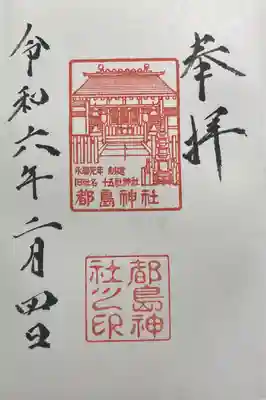 奉拝
永暦元年 創建
旧社名 十五社神社
都島神社
都島神
社之印
令和六年二月四日